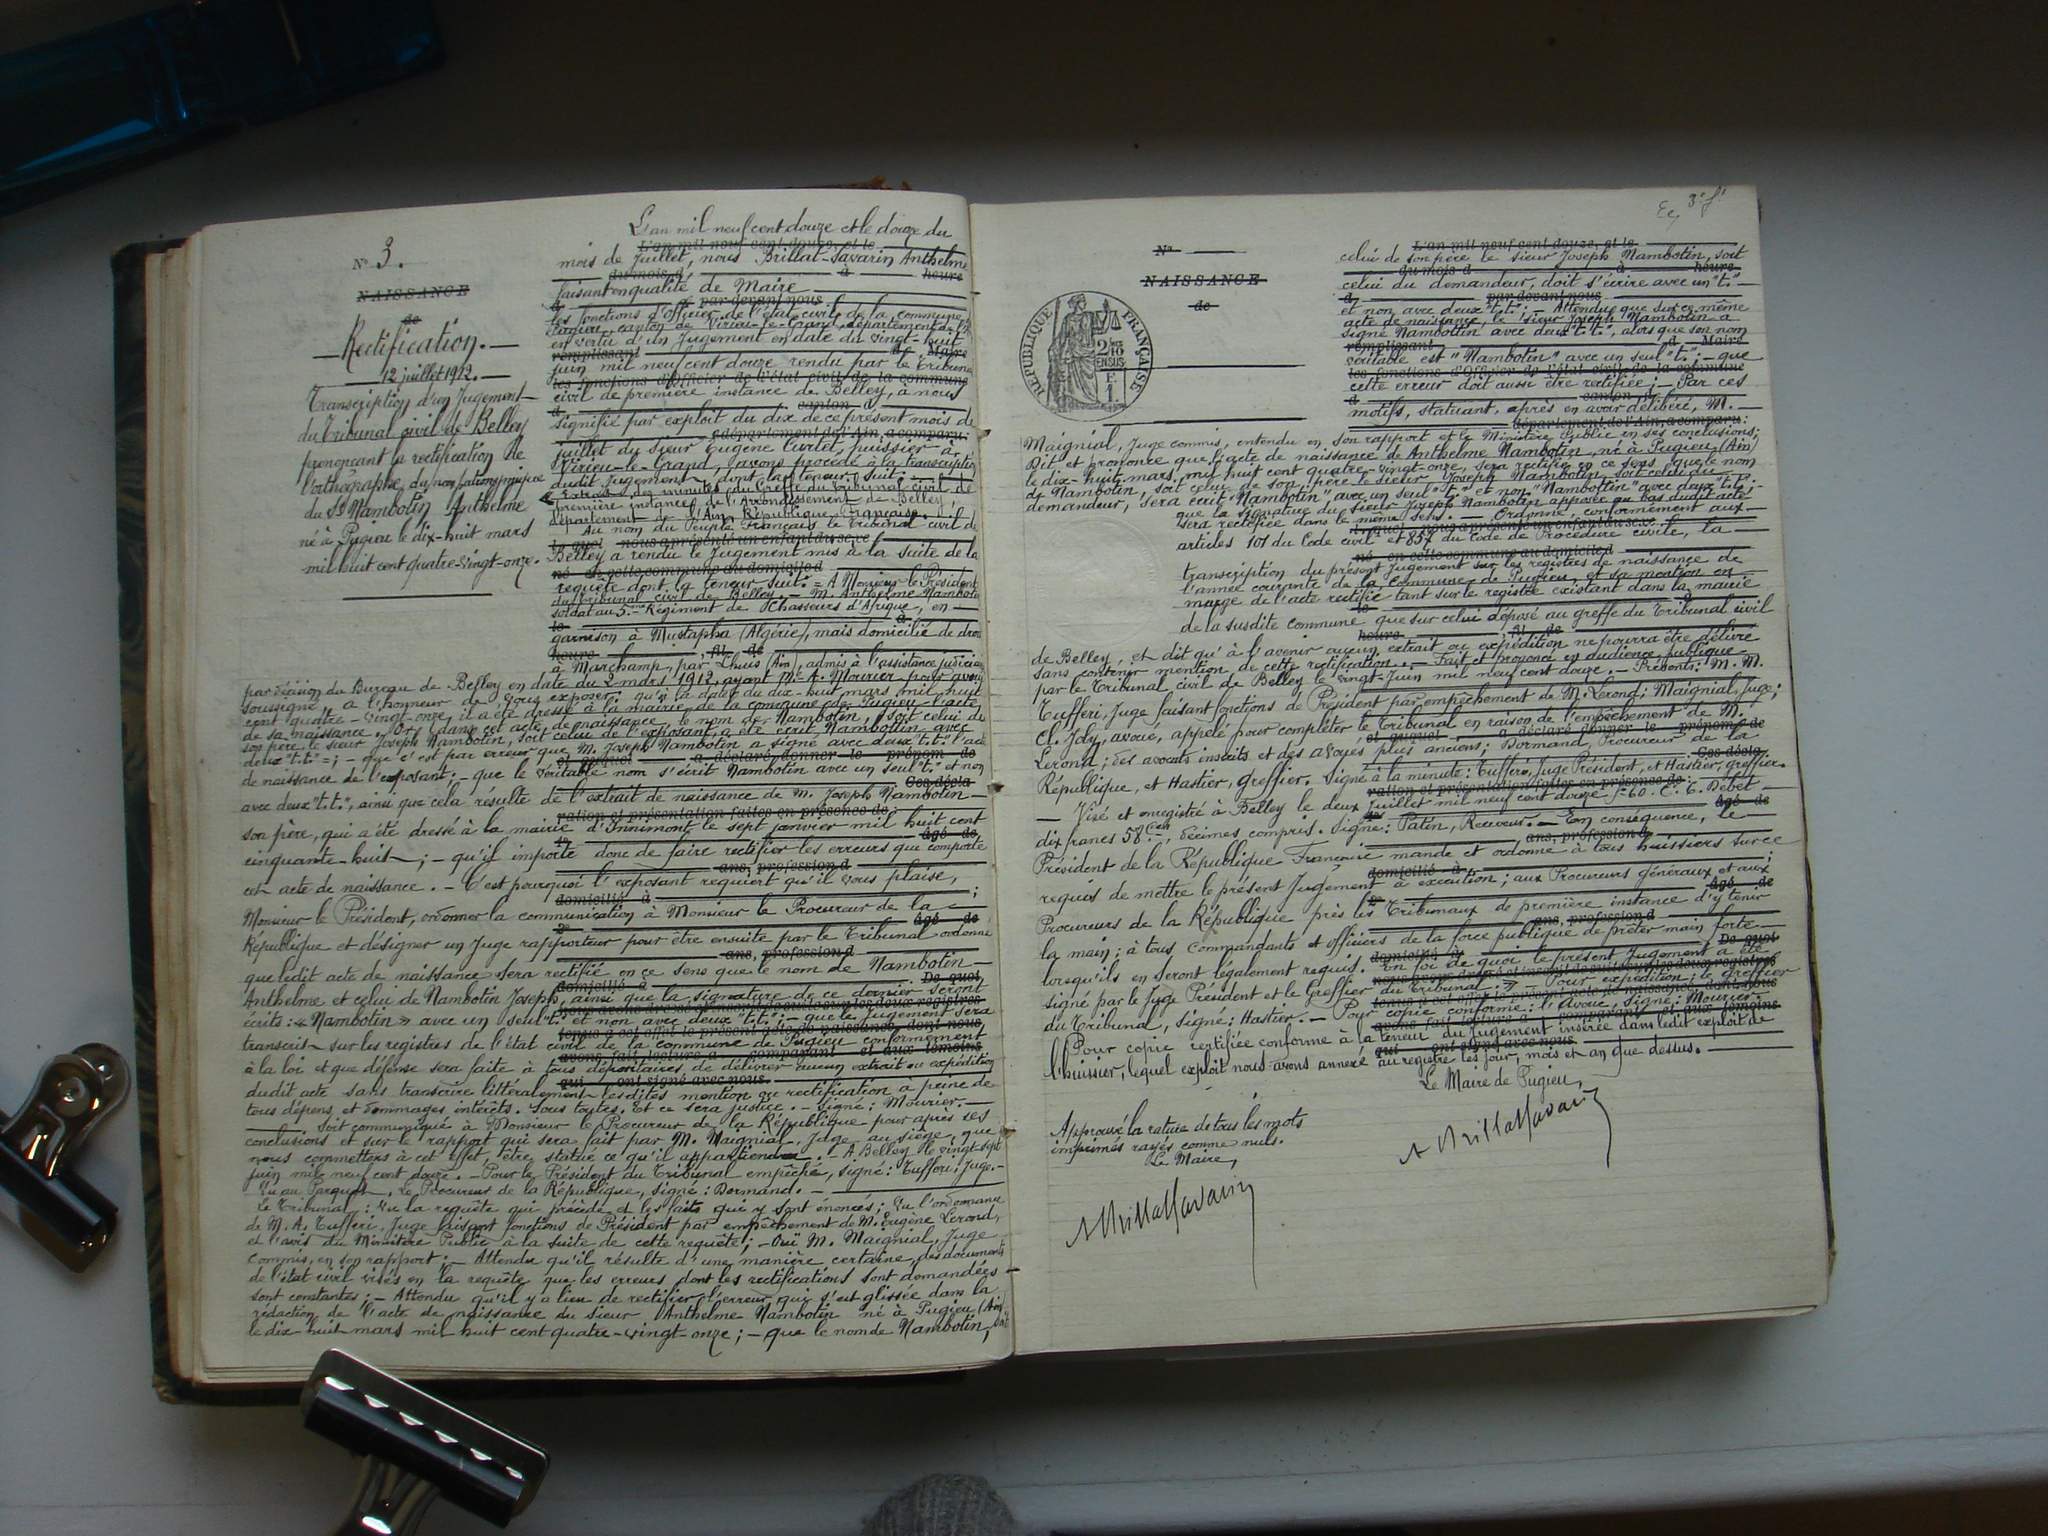 N° 3.
NAISSANCE
de
Rectification.
12 juillet 1912.
Transcription d'un Jugement
du Tribunal civil de Belley
prononçant la rectification de
l'orthographe du nom patronymique
du Sr Nambotin Anthelme
né à Pugieu le dix-huit mars
mil huit cent quatre-vingt-onze.
L'an mil neuf cent douze et le douze du
L'an mil neuf cent douze, et le
mois de Juillet, nous Brillat-Savarin Anthelme
du mois d à heure
faisant en qualité de Maire
d par devant nous
les fonctions d'Officier de l'état civil de la commune
canton de Virieu-le-Grand, département de l'Ain
en vertu d'un Jugement en date du vingt-huit
remplissant de Maire
juin mil neuf cent douze rendu par le Tribunal
les fonctions d'Officier de l'état civil de la commune
civil de première instance de Belley, à nous
d canton d
signifié par exploit du dix de ce présent mois de
département de l'Ain, a comparu:
juillet du sieur Eugène huissier à
Virieu-le-Grand, avons procédé à la transcription
dudit Jugement dont la teneur suit: -
Extrait des minutes du Greffe du Tribunal civil de
première instance de l'Arrondissement de Belley,
département de l'Ain, République Française.
Au nom du Peuple Français le Tribunal civil de
lequel nous a présenté un enfant du sexe
Belley a rendu le Jugement mis à la suite de la
né en cette commune au domicile d
requête dont la teneur suit: = A Monsieur le Président
du Tribunal civil de Belley. - M. Anthelme Nambotin
soldat au 5me Régiment de Chasseurs d'Afrique, en
le à
garnison à Mustapha (Algérie), mais domicilié de droit
heure fil de
à Marchamp, par Lhuis (Ain), admis à l'assistance judiciaire
par décision du Bureau de Belley en date du 2 mars 1912, ayant Me A. Mourier pour avoué
soussigné, a l'honneur de vous exposer: qu'à la date du dix-huit mars mil huit
cent quatre-vingt-onze, il a été dressé à la mairie de la commune de Pugieu l'acte
de sa naissance. Or, dans cet acte de naissance, le nom de Nambotin, soit celui de
son père le sieur Joseph Nambotin, soit celui de l'exposant a été écrit Nambottin avec
deux "t.t." =; - que c'est par erreur que M. Joseph Nambotin a signé avec deux "t.t." l'acte
et auquel a déclaré donner le prénom de
de naissance de l'exposant; - que le véritable nom s'écrit Nambotin avec un seul "t." et non
Ces décla-
avec deux "t.t.", ainsi que cela résulte de l'extrait de naissance de M. Joseph Nambotin
ration et présentation faites en présence de:
son père, qui a été dressé à la mairie d'Innimont le sept janvier mil huit cent
1° âgé de
cinquante-huit; - qu'il importe donc de faire rectifier les erreurs que comporte
ans, profession d
cet acte de naissance. - C'est pourquoi l'exposant requiert qu'il vous plaise,
domicilié à ;
Monsieur le Président, ordonner la communication à Monsieur le Procureur de la
2° âgé de
République et désigner un Juge rapporteur pour être ensuite par le Tribunal ordonné
ans, profession d
que ledit acte de naissance sera rectifié en ce sens que le nom de Nambotin
domicilié à De quoi
Anthelme et celui de Nambotin Joseph, ainsi que la signature de ce dernier seront
nous avons dressé et inscrit de suite sur les deux registres
écrits: « Nambotin » avec un seul "t." et non avec deux "t.t."; - que le Jugement sera
tenus à cet effet le présent acte de naissance, dont nous
transcrit sur les registres de l'état civil de la commune de Pugieu conformément
avons fait lecture a comparant et aux témoins
à la loi et que défense sera faite à tous dépositaires de délivrer aucun extrait ou expédition
qui ont signé avec nous.
dudit acte sans transcrire littéralement lesdites mention ou rectification à peine de
tous dépens et dommages intérêts. Sous toutes. Et ce sera justice. - Signé: Mourier.
Soit communiqué à Monsieur le Procureur de la République pour après ses
conclusions et sur le rapport qui sera fait par M. Maignial, Juge au siège, que
nous commettons à cet effet, être statué ce qu'il appartiendra. - A Belley le vingt-sept
juin mil neuf cent douze. - Pour le Président du Tribunal empêché, signé: Tufferi, Juge.
Vu au Parquet. Le Procureur de la République, signé: Dormand. -
Le Tribunal; Vu la requête qui précède et les faits qui y sont énoncés; Vu l'ordonnance
de M. A. Tufferi, Juge faisant fonctions de Président par empêchement de M. Eugène Lerond,
et l'avis du Ministère Public à la suite de cette requête; - Ouï M. Maignial, Juge
commis, en son rapport; - Attendu qu'il résulte d'une manière certaine, des documents
de l'état civil visés en la requête que les erreurs dont les rectifications sont demandées
sont constantes; - Attendu qu'il y a lieu de rectifier l'erreur qui s'est glissée dans la
rédaction de l'acte de naissance du sieur Anthelme Nambotin né à Pugieu (Ain)
le dix huit mars mil huit cent quatre-vingt-onze; - que le nom de Nambotin, soit
N°
NAISSANCE
de
RÉPUBLIQUE FRANÇAISE
celui de son père le sieur Joseph Nambotin, soit
L'an mil neuf cent douze, et le
celui du demandeur, doit s'écrire avec un "t."
du mois d à heure
et non avec deux "t.t." - Attendu que sur ce même
d par devant nous
acte de naissance, le sieur Joseph Nambotin a
signé Nambottin avec deux "t.t.", alors que son nom
remplissant d Maire
véritable est "Nambotin" avec un seul "t."; - que
les fonctions d'Officier de l'état civil de la commune
cette erreur doit aussi être rectifiée; - Par ces
d canton d
motifs, statuant, après en avoir délibéré, M.
département de l'Ain, a comparu:
Maignial, Juge commis, entendu en son rapport et le Ministère Public en ses conclusions;
Dit et prononce que l'acte de naissance de Anthelme Nambotin, né à Pugieu (Ain)
le dix-huit mars mil huit cent quatre-vingt-onze, sera rectifié en ce sens, que le nom
de Nambotin, soit celui de son père le sieur Joseph Nambotin, soit celui du
demandeur, sera écrit "Nambotin" avec un seul "t." et non "Nambottin" avec deux "t.t.";
que la signature du sieur Joseph Nambotin apposée au bas dudit acte,
sera rectifiée dans le même sens. - Ordonne, conformément aux
lequel nous a présenté un enfant du sexe
articles 101 du Code civil et 857 du Code de Procédure civile, la
né en cette commune au domicile d
transcription du présent Jugement sur les registres de naissance de
l'année courante de la Commune de Pugieu, et sa mention en
marge de l'acte rectifié tant sur le registre existant dans la mairie
le à
de la susdite commune que sur celui déposé au greffe du Tribunal civil
heure fil de
de Belley, et dit qu'à l'avenir aucun extrait ou expédition ne pourra être délivré
sans contenir mention de cette rectification. - Fait et prononcé en audience publique
par le Tribunal civil de Belley le vingt-Juin mil neuf cent douze. - Présents: M. M.
Tufferi, Juge faisant fonctions de Président par empêchement de M. Lerond; Maignial, Juge;
Cl. Joly, avoué, appelé pour compléter le Tribunal en raison de l'empêchement de M.
et auquel a déclaré donner le prénom de
Lerond; des avocats inscrits et des avoués plus anciens; Dormand, Procureur de la
Ces décla-
République, et Hastier, greffier. Signé à la minute: Tufferi, Juge Président, et Hastier, greffier.
ration et présentation faites en présence de:
- Visé et enregistré à Belley le deux Juillet mil neuf cent douze f° 60. C. 6. Débet
1° âgé de
dix francs 58 cen, décimes compris. Signé: Patin, Receveur. - En conséquence, le
ans, profession d
Président de la République Française mande et ordonne à tous huissiers sur ce
domicilié à ;
requis de mettre le présent Jugement à exécution; aux Procureurs généraux et aux
2° âgé de
Procureurs de la République près les Tribunaux de première instance d'y tenir
ans, profession d
la main; à tous Commandants et officiers de la force publique de prêter main forte
domicilié à De quoi
lorsqu'ils en seront légalement requis. En foi de quoi le présent Jugement a été
nous avons dressé et inscrit de suite sur les deux registres
signé par le Juge Président et le Greffier du Tribunal. » - Pour expédition; le greffier
tenus à cet effet le présent acte de naissance, dont nous
du Tribunal, signé: Hastier. - Pour copie conforme: l'Avoué, signé: Mourier.
avons fait lecture a comparant et aux témoins
Pour copie certifiée conforme à la teneur du Jugement insérée dans ledit exploit de
qui ont signé avec nous.
l'huissier, lequel exploit nous avons annexé au registre les jour, mois et an que dessus.
Le Maire de Pugieu,
A Brillat Savarin
Approuvé la rature de tous les mots
imprimés rayés comme nuls.
Le Maire,
A Brillat Savarin